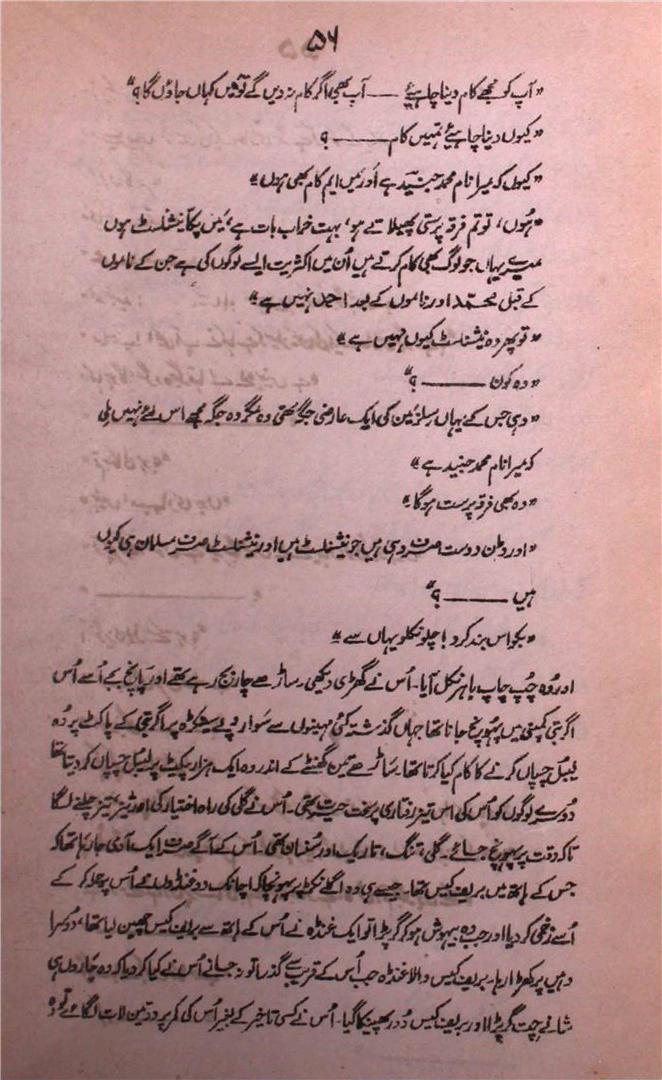 ۵۶
"آپ کو مجھے کام دینا چاہیئے —— آپ بھی اگر کام نہ دیں گے تو میں کہاں جاؤں گا؟"
"کیوں دینا چاہیئے تمہیں کام —— ؟
"کیوں کہ میرا نام محمد جنید ہے اور میں ایم کام بھی ہوں۔"
"ہُوں، تو تم فرقہ پرستی پھیلاتے ہو، بہت خراب بات ہے، میں پکا نیشنلسٹ ہوں
میرے یہاں جو لوگ بھی کام کرتے ہیں اُن میں اکثریت ایسے لوگوں کی ہے جن کے ناموں
کے قبل محمد اور ناموں کے بعد احمد نہیں ہے۔"
"تو پھر وہ نیشنلسٹ کیوں نہیں ہے۔"
"وہ کون —— ؟"
"وہی جس کے یہاں سیلزمین کی ایک عارضی جگہ تھی وہ مگر وہ جگہ مجھے اس لئے نہیں ملی
کہ میرا نام محمد جنید ہے۔"
"وہ بھی فرقہ پرست ہوگا۔"
"اور وطن دوست صرف وہی ہیں جو نیشنلسٹ ہیں اور نیشنلسٹ صرف مسلمان ہی کیوں
ہیں —— ؟"
"بکواس بند کرو! چلو نکلو یہاں سے۔"
اور وہ چُپ چاپ باہر نکل آیا۔ اُس نے گھڑی دیکھی۔ ساڑھے چار بج رہے تھے اور پانچ بجے اُسے اُس
اگربتی کمپنی میں پہونچ جانا تھا جہاں گذشتہ کئی مہینوں سے سوا روپے سیکڑہ پر اگربتی کے پاکٹ پر وُہ
لیبل چسپاں کرنے کا کام کیا کرتا تھا۔ ساڑھے تین گھنٹے کے اندر وہ ایک ہزار پیکیٹ پر لیبل چسپاں کر دیتا تھا
دُوسرے لوگوں کو اُس کی اس تیز رفتاری پر سخت حیرت تھی۔ اُس نے گلی کی راہ اختیار کی اور تیز تیز چلنے لگا
تاکہ وقت پر پہونچ جائے۔ گلی، تنگ، تاریک اور سُنسان تھی۔ اُس کے آگے صرف ایک آدمی جا رہا تھا کہ
جس کے ہاتھ میں بریف کیس تھا۔ جیسے ہی وہ اگلے نکڑ پر پہونچا کہ اچانک دو غنڈوں نے اُس پر حملہ کر کے
اُسے زخمی کر دیا اور جب وہ بیہوش ہو کر گر پڑا تو ایک غنڈہ نے اُس کے ہاتھ سے بریف کیس چھین لیا تھا، دُوسرا
وہیں پر کھڑا رہا۔ بریف کیس والا غنڈہ جب اُس کے قریب سے گذرا تو نہ جانے اُس نے کیا کر دیا کہ وہ چاروں ہی
شانے چت گر پڑا اور بریف کیس دُور پھینکا گیا۔ اُس نے کسی تاخیر کے بغیر اُس کی کمر پر دو تین لات لگائے تو وہ